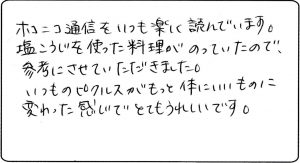 ホコニコ通信をいつも楽しく読んでいます。
塩こうじを使った料理がのっていたので、
参考にさせていただきました。
いつものピクルスがもっと体にいいものに
変わった感じでとてもうれしいです。